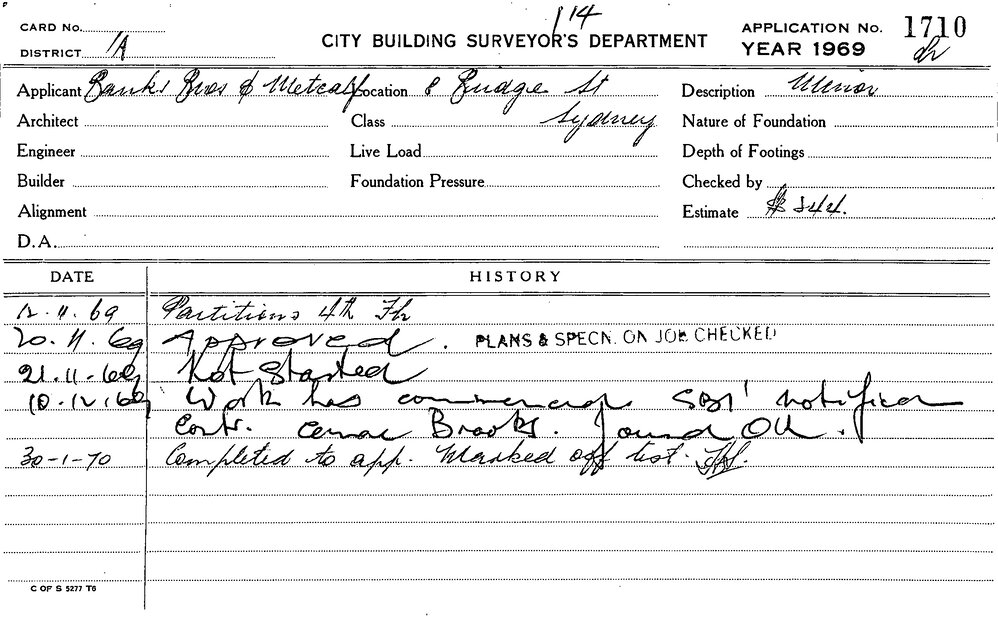 114
CARD No.
DISTRICT 1A
CITY BUILDING SURVEYOR'S DEPARTMENT
APPLICATION No. 1710
YEAR 1969
Applicant Banks Bros & Metcalf Location 8 Bridge St
Sydney
Description Minor
Architect
Class
Nature of Foundation
Engineer
Live Load
Depth of Footings
Builder
Foundation Pressure
Checked by
Alignment
Estimate $ 844.
D.A.
DATE HISTORY
12.11.69 Partitions 4th Flr
20.11.69 Approved. PLANS & SPECN. ON JOB CHECKED
21.11.69 Not Started
10.12.69 Work has commenced SBI notified
Contr. Brooks. found OK.
30-1-70 Completed to app. Marked off list.
C OF S 5277 T6